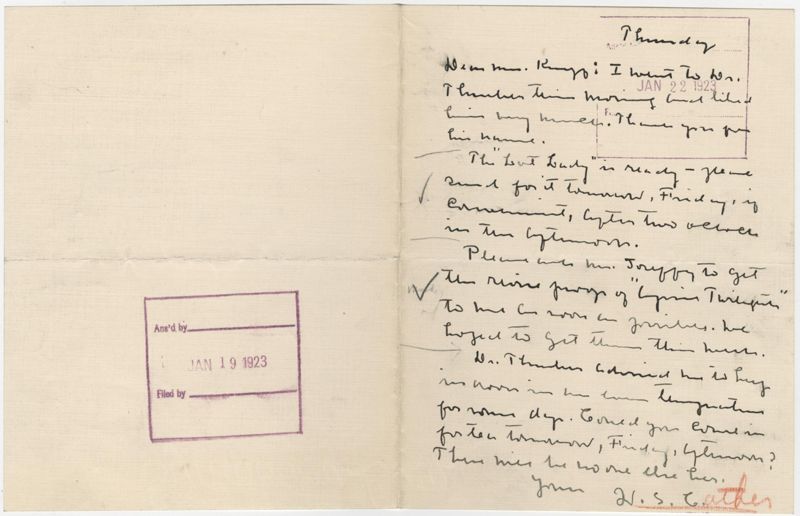 Ans'd by
JAN 19 1923
Filed by
Thursday
Dear Mr. Knopf: I went to Dr.
JAN 22 1923
Thurber this morning and liked
him very much. Thank you for
his name.
The "Lost Lady" is ready — please
send for it tomorrow, Friday, if
convenient, after two o'clock
in the afternoon.
Please ask Mr. to get
the revise proofs of "April Twilights"
to me as soon as possible. We
hoped to get them this week.
Dr. Thurber advised me to keep
indoors in an even temperature
for some days. Could you come in
for tea tomorrow, Friday, afternoon?
There will be no one else here.
Yours
W. S. Cather